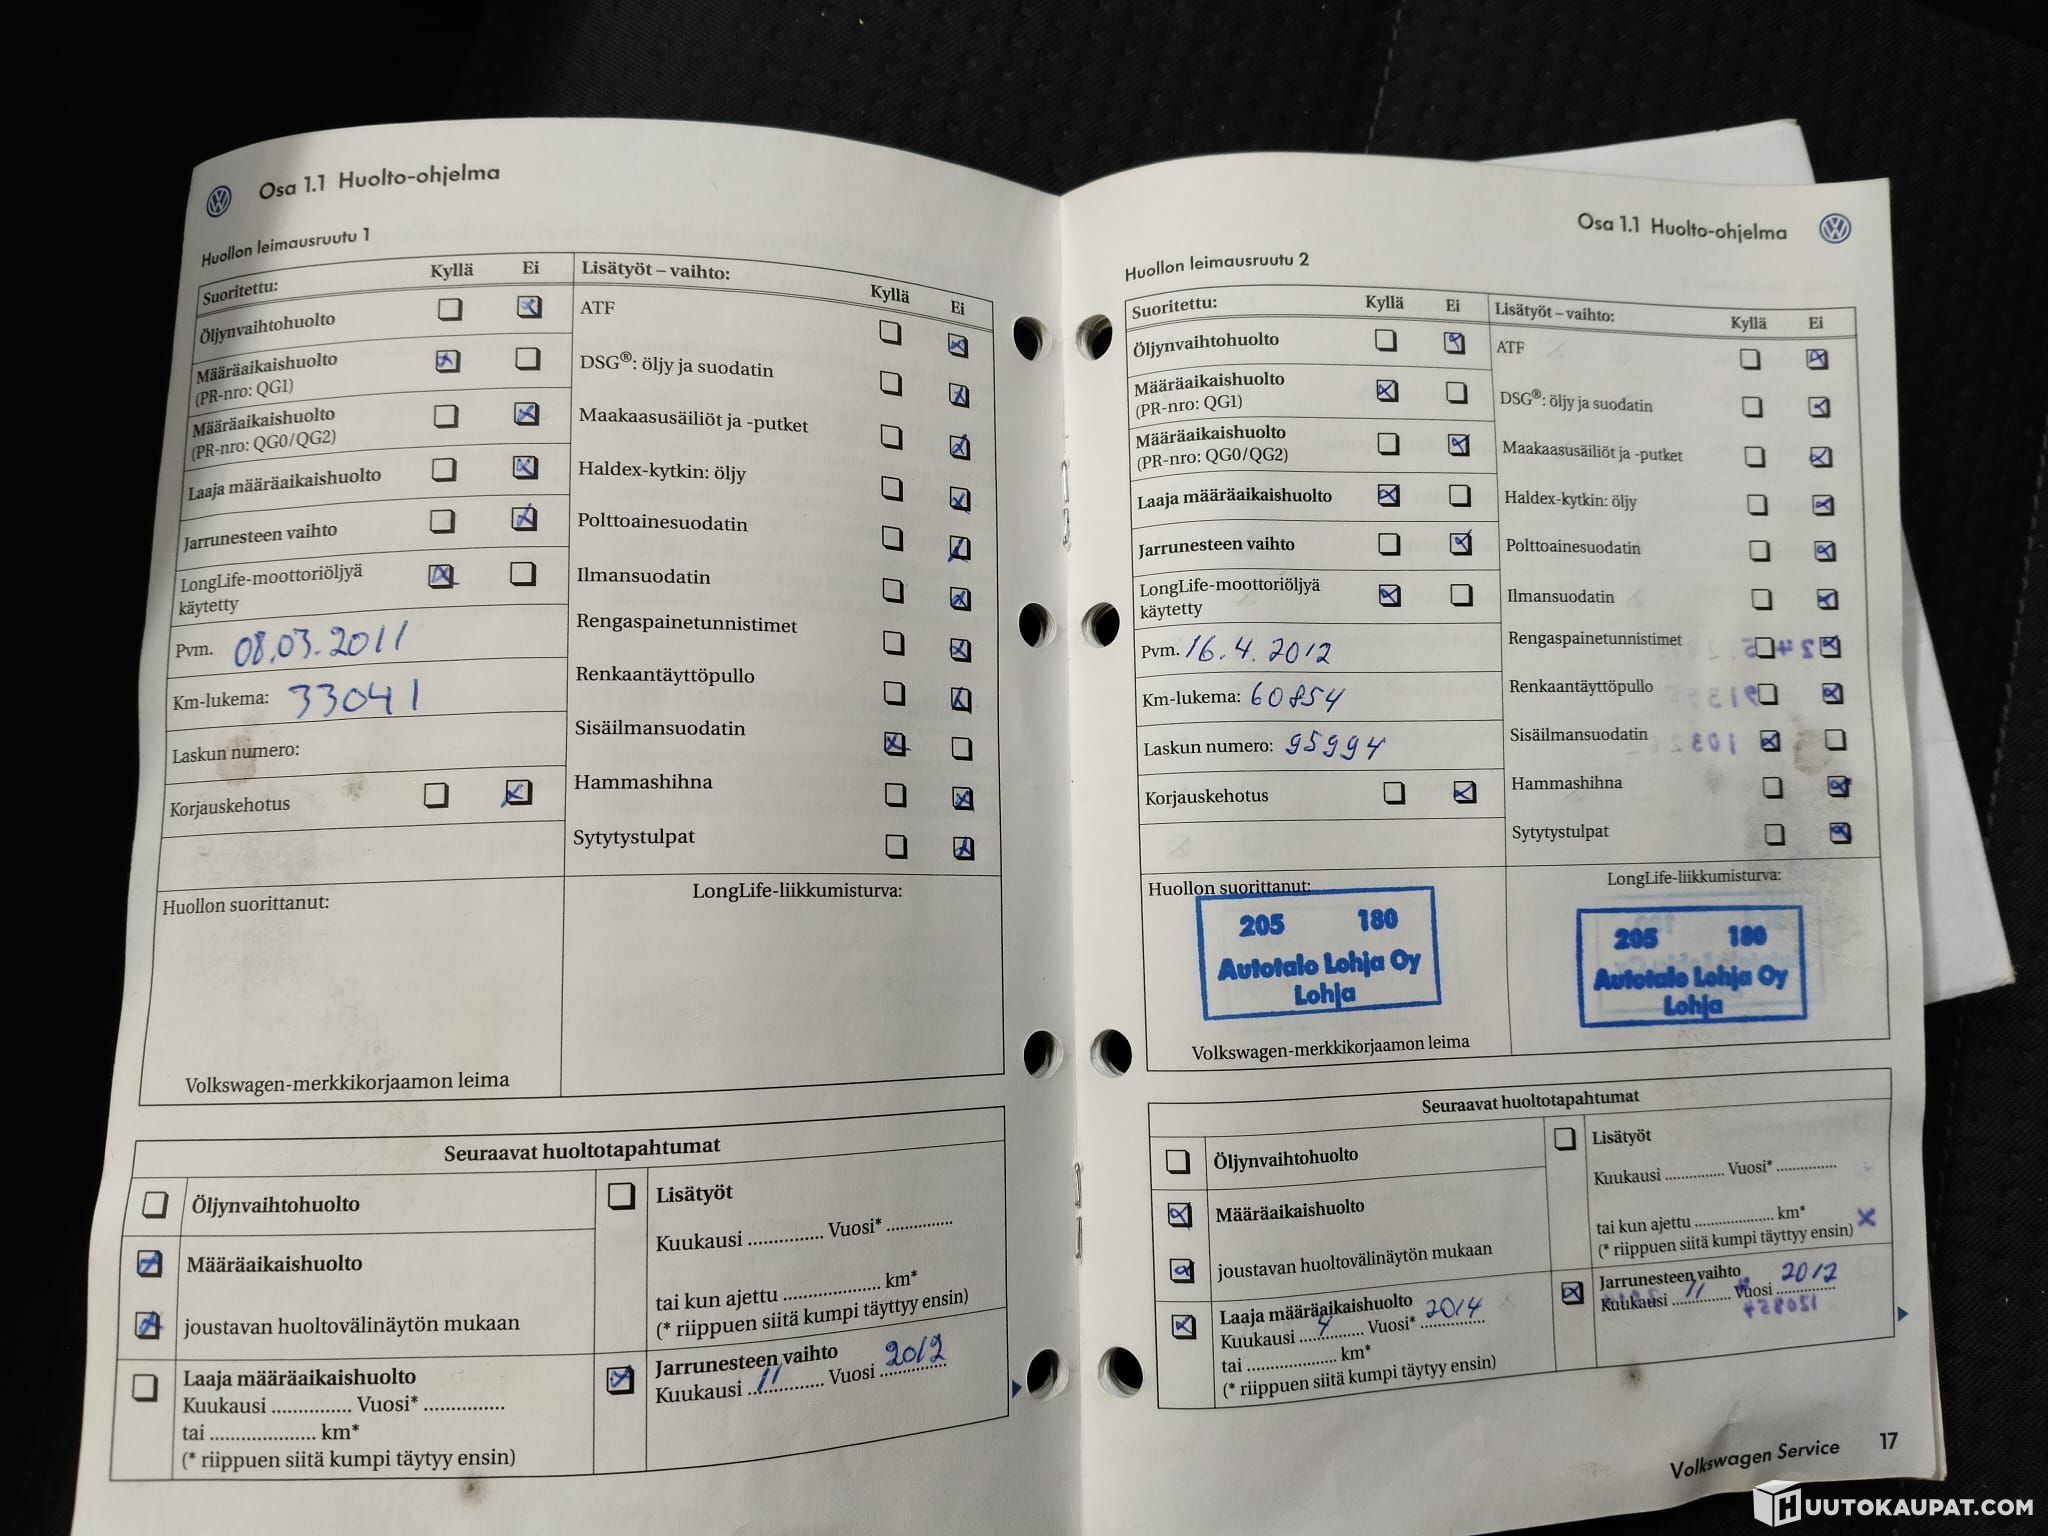 Osa 1.1 Huolto-ohjelma
Huollon leimausruutu 1
Suoritettu: Kyllä Ei
Öljynvaihtohuolto
Määräaikaishuolto
(PR-nro: QG1)
Määräaikaishuolto
(PR-nro: QG0/QG2)
Laaja määräaikaishuolto
Jarrunesteen vaihto
LongLife-moottoriöljyä
käytetty
Pvm. 08.03.2011
Km-lukema: 33041
Laskun numero:
Korjauskehotus
Lisätyöt – vaihto: Kyllä Ei
ATF
DSG®: öljy ja suodatin
Maakaasusäiliöt ja -putket
Haldex-kytkin: öljy
Polttoainesuodatin
Ilmansuodatin
Rengaspainetunnistimet
Renkaantäyttöpullo
Sisäilmansuodatin
Hammashihna
Sytytystulpat
Huollon suorittanut:
Volkswagen-merkkikorjaamon leima
LongLife-liikkumisturva:
Seuraavat huoltotapahtumat
Öljynvaihtohuolto
Määräaikaishuolto
joustavan huoltovälinäytön mukaan
Laaja määräaikaishuolto
Kuukausi ............... Vuosi* ...............
tai .................... km*
(* riippuen siitä kumpi täytyy ensin)
Lisätyöt
Kuukausi .............. Vuosi* .............
tai kun ajettu .................... km*
(* riippuen siitä kumpi täyttyy ensin)
Jarrunesteen vaihto
Kuukausi 11 Vuosi 2012
Osa 1.1 Huolto-ohjelma
Huollon leimausruutu 2
Suoritettu: Kyllä Ei
Öljynvaihtohuolto
Määräaikaishuolto
(PR-nro: QG1)
Määräaikaishuolto
(PR-nro: QG0/QG2)
Laaja määräaikaishuolto
Jarrunesteen vaihto
LongLife-moottoriöljyä
käytetty
Pvm. 16.4.2012
Km-lukema: 60854
Laskun numero: 95994
Korjauskehotus
Lisätyöt – vaihto: Kyllä Ei
ATF
DSG®: öljy ja suodatin
Maakaasusäiliöt ja -putket
Haldex-kytkin: öljy
Polttoainesuodatin
Ilmansuodatin
Rengaspainetunnistimet
Renkaantäyttöpullo
Sisäilmansuodatin
Hammashihna
Sytytystulpat
Huollon suorittanut:
205 180
Autotalo Lohja Oy
Lohja
Volkswagen-merkkikorjaamon leima
LongLife-liikkumisturva:
205 180
Autotalo Lohja Oy
Lohja
Seuraavat huoltotapahtumat
Öljynvaihtohuolto
Määräaikaishuolto
joustavan huoltovälinäytön mukaan
Laaja määräaikaishuolto
Kuukausi 4 Vuosi* 2014
tai .................... km*
(* riippuen siitä kumpi täytyy ensin)
Lisätyöt
Kuukausi .............. Vuosi* ..............
tai kun ajettu .................... km*
(* riippuen siitä kumpi täyttyy ensin)
Jarrunesteen vaihto
Kuukausi 11 Vuosi 2012
Volkswagen Service 17
HUUTOKAUPAT.COM